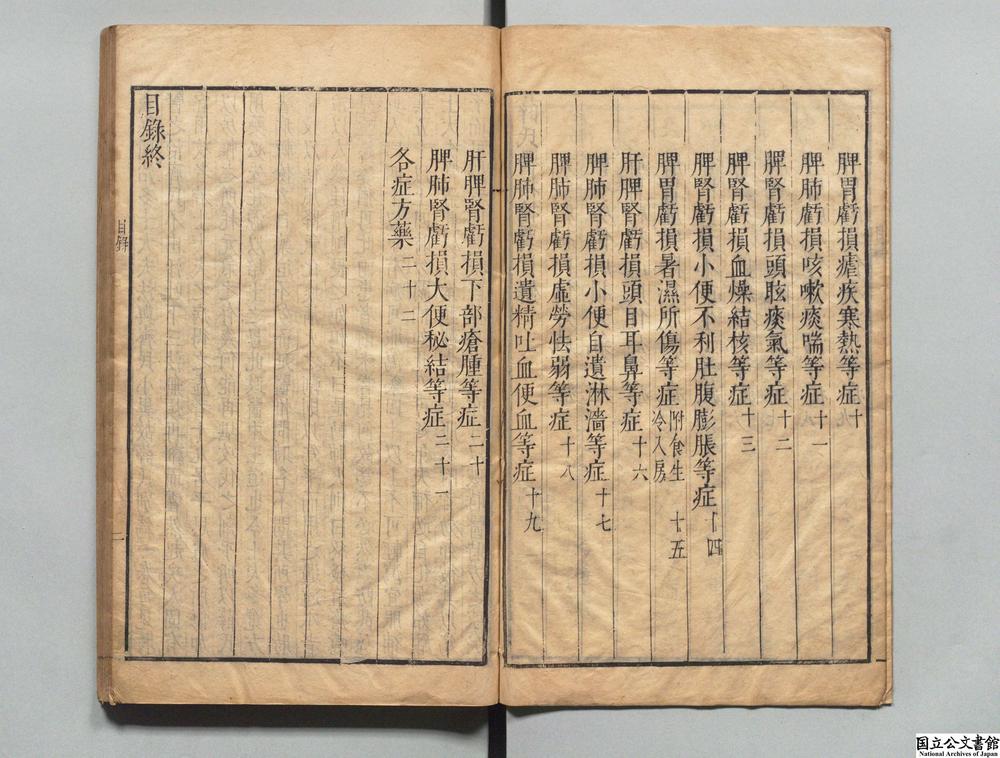 脾胃虧損瘧疾寒熱等症十
脾肺虧損咳嗽痰喘等症十一
脾腎虧損頭眩痰氣等症十二
脾腎虧損血燥結核等症十三
脾腎虧損小便不利肚腹膨脹等症十四
脾胃虧損暑濕所傷等症附食生冷入房十五
肝脾腎虧損頭目耳鼻等症十六
脾肺腎虧損小便自遺淋濇等症十七
脾肺腎虧損虛勞怯弱等症十八
脾肺腎虧損遺精吐血便血等症十九
肝脾腎虧損下部瘡腫等症二十
脾肺腎虧損大便秘結等症二十一
各症方藥二十二
目錄終
目錄
国立公文書館
National Archives of Japan